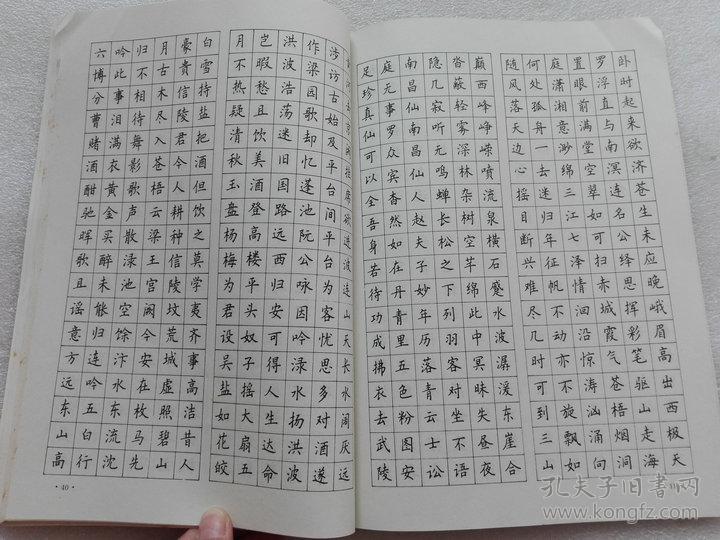 卧时起来欲济苍生未应晚峨眉高出西极天
罗浮直与南溟连名公绎思挥彩笔驱山走海
置眼前满堂空翠如可扫赤城霞气苍梧烟洞
庭潇湘意渺绵三江七泽情洄沿惊涛汹涌向
何处孤舟一去迷归年征帆不动亦不旋飘如
随风落天边心摇目断兴难尽几时可到三山
巅西峰峥嵘喷流泉横石蹙水波潺湲东崖合
沓蔽轻雾深林杂树空芊绵此中冥昧失昼夜
隐几寂听无鸣蝉长松之下列羽客对坐不语
南昌仙南昌仙人赵夫子妙年历落青云士讼
庭无事罗众宾杳然如在丹青里五色粉图安
足珍真仙可以全吾身若待功成拂衣去武陵
黄河去京阙挂席欲进波连山天长水阔厌远
涉访古始及平台间平台为客忧思多对酒遂
作梁园歌却忆蓬池阮公咏因吟渌水扬洪波
洪波浩荡迷旧国路远西归安可得人生达命
岂暇愁且饮美酒登高楼平头奴子摇大扇五
月不热疑清秋玉盘杨梅为君设吴盐如花皎
白雪持盐把酒但饮之莫学夷齐事高洁昔人
豪贵信陵君今人耕种信陵坟荒城虚照碧山
月古木尽入苍梧云梁王宫阙今安在枚马先
归不相待舞影歌声散渌池空馀汴水东流沈
吟此事泪满衣黄金买醉未能归连呼五白行
六博分曹赌酒酣驰晖歌且谣意方远东山高
·40·
孔夫子旧书网
www.kongfz.com